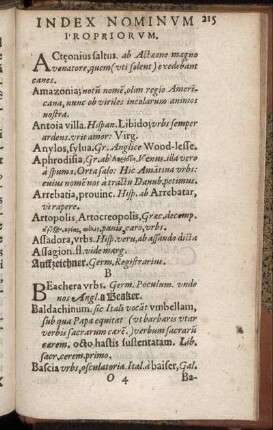 INDEX NOMINVM 215
PROPRIORVM.
ACtęonius saltus. ab Actæone magno
venatore, quem (vti solent) exedebant
canes.
Amazonia; notũ nomẽ, olim regio Ameri-
cana, nunc ob viriles incolarum animos
nostra.
Antoia villa. Hispan. Libido; vrbs semper
ardens. vrit amor: Virg.
Anylos, sylua. Gr. Anglicè Wood-lesse.
Aphrodisia, Gr. ab Venus. illa verò
à spuma. Orta salo: Hic Amásina vrbs:
euius nomẽ nos à tractu Danub. petimus.
Arrebatia, prouinc. Hisp. ab Arrebatar,
vi rapere.
Artopolis, Artocreopolis, Græc. decomp.
panis, caro, vrbs.
Assadora, vrbs. Hisp. veru, ab assando dicta
Assagion. fl. vide marg.
Auffzeichner. Germ. Registrarius.
B
BEachera vrbs. Germ. Poculum. vnde
nos Angl. a Beaker.
Baldachinum. sic Itali vocãt vmbellam,
sub qua Papa equitat (vt barbaris vtar
verbis sacrarum cærẽ.) verbum sacrarũ
cærem. octo hastis sustentatam. Lib.
sacr. cerem. primo.
Bascia vrbs, osculatoria. Ital. à baiser, Gal.
O 4 Ba-